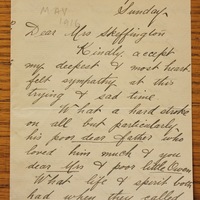 MAY
1916
Sunday
Dear Mrs Skeffington
Kindly accept
my deepest & most heart
felt sympathy at this
trying & sad time
What a hard stroke
on all but particularly
his poor dear father who
loved him much & you
dear Mrs & poor little Owen
What life & spirit both
had when they called